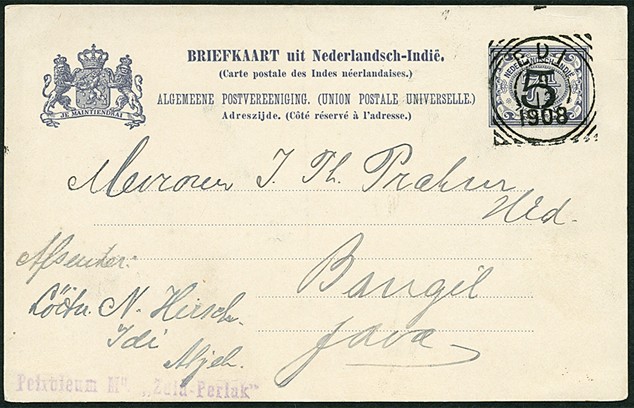 BRIEFKAART uit Nederlandsch-Indië.
(Carte postale des Indes néerlandaises.)
ALGEMEENE POSTVEREENIGING. (UNION POSTALE UNIVERSELLE.)
Adreszijde. (Côté réservé à l'adresse.)
JE MAINTIENDRAI
IDI
5
1908
Mevrouw J. Th.
Wed.
Bangil
Java
Afsender:
N. Hirsch
Idi
Atjeh.
Petroleum Mij „Zuid-Perlak"